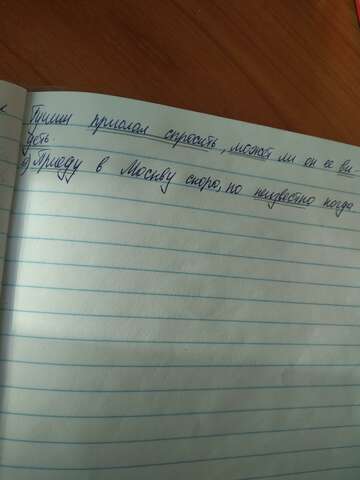 Пушкин прислал спросить, может ли он ее ви-
деть.
6) Приеду в Москву скоро, но неизвестно когда